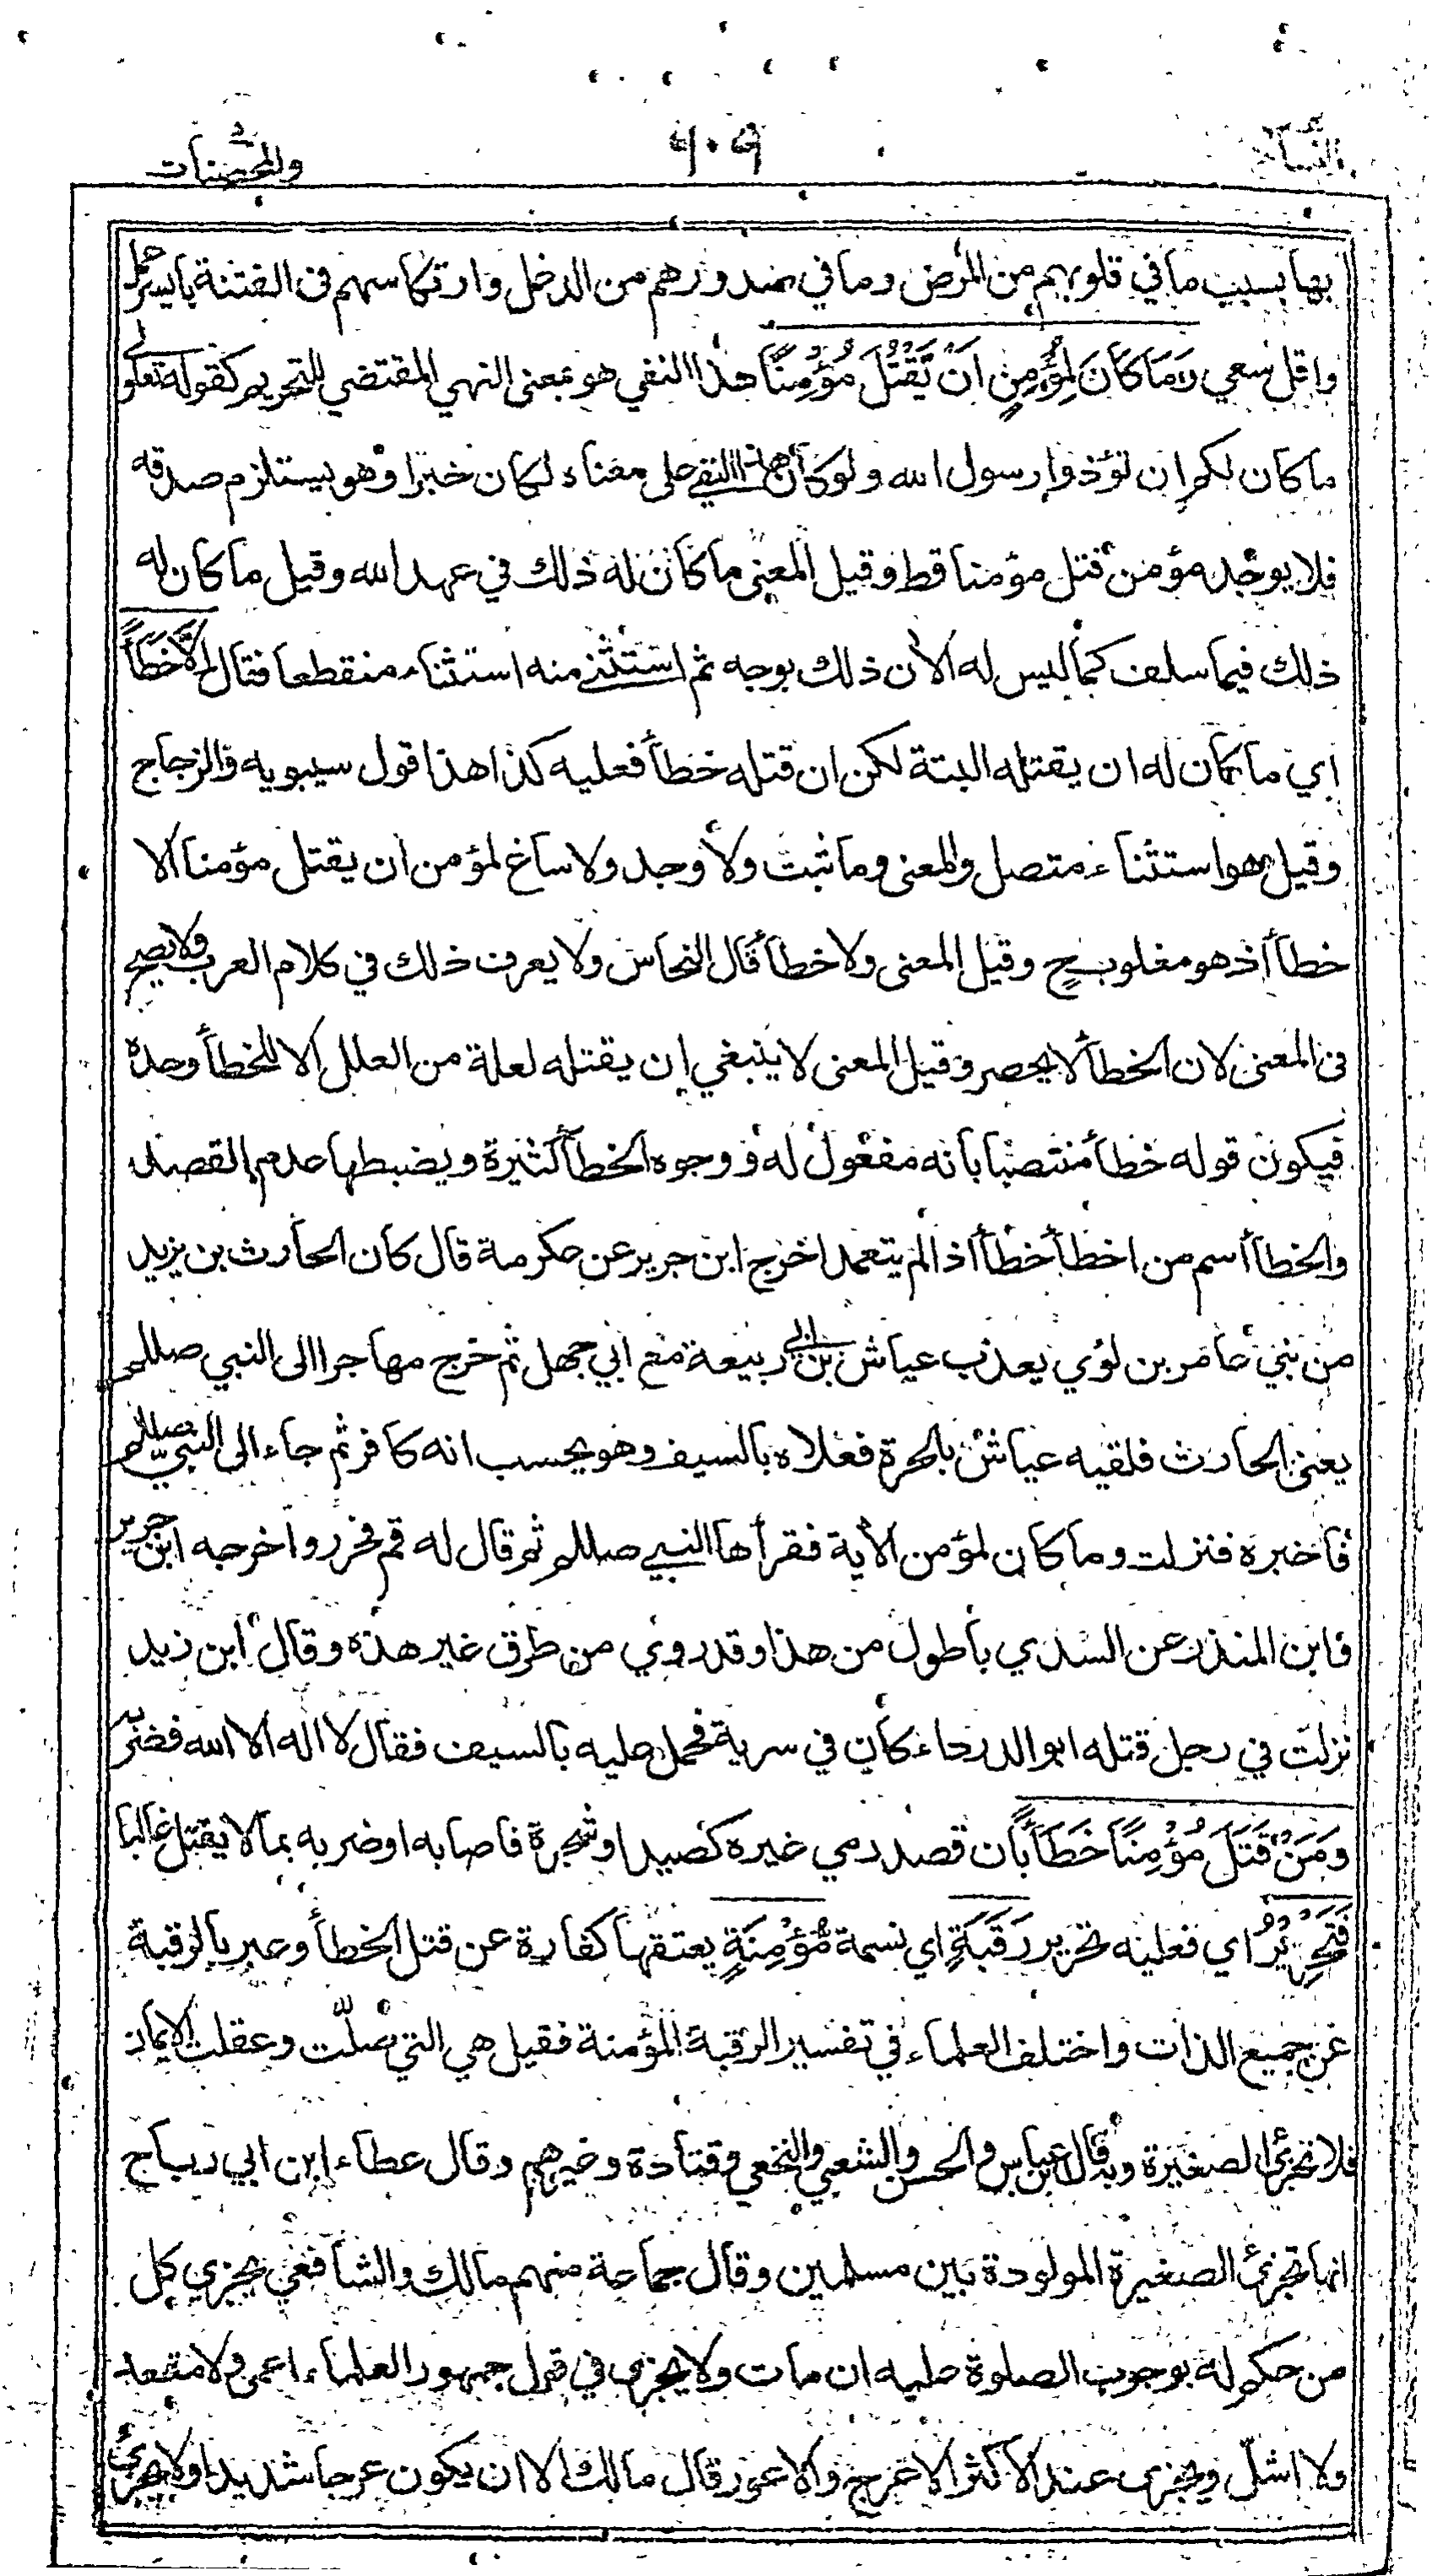 النساء ٦٠٩ والمحصنات
بها بسبب ما في قلوبهم من المرض وما في صدورهم من الدخل وارتكاسهم في الفتنة بايسر حمل
واقل سعي وَمَا كَانَ لِمُؤْمِنٍ اَنْ يَّقْتُلَ مُؤْمِنًا هذا النفي هو بمعنى النهي المقتضي للتحريم كقوله تعالى
ما كان لكم ان تؤذوا رسول الله ولو كان هذا النفي على معناه لكان خبرا وهو يستلزم صدقه
فلا يوجد مؤمن قتل مؤمنا قط وقيل المعنى ما كان له ذلك في عهد الله وقيل ما كان له
ذلك فيما سلف كما ليس له الآن ذلك بوجه ثم استثنى منه استثناء منقطعا فقال اِلَّا خَطَأً
اي ما كان له ان يقتله البتة لكن ان قتله خطأ فعليه كذا هذا قول سيبويه والزجاج
وقيل هو استثناء متصل والمعنى وما ثبت ولا وجد ولا ساغ لمؤمن ان يقتل مؤمنا الا
خطأ اذ هو مغلوب ح وقيل المعنى ولا خطأ قال النحاس ولا يعرف ذلك في كلام العرب ولا يصح
في المعنى لان الخطأ لا يحصر وقيل المعنى لا ينبغي ان يقتله لعلة من العلل الا للخطأ وحده
فيكون قوله خطأ منتصبا بانه مفعول له ووجوه الخطأ كثيرة ويضبطها عدم القصد
والخطأ اسم من اخطأ خطأ اذا لم يتعمد اخرج ابن جرير عن عكرمة قال كان الحارث بن يزيد
من بني عامر بن لؤي يعذب عياش بن ابي ربيعة مع ابي جهل ثم خرج مهاجرا الى النبي صللم
يعني الحارث فلقيه عياش بالحرة فعلاه بالسيف وهو يحسب انه كافر ثم جاء الى النبي صللم
فاخبره فنزلت وما كان لمؤمن الآية فقرأها النبي صللم ثم قال له قم فحرر واخرجه ابن جرير
وابن المنذر عن السدي باطول من هذا وقد روي من طرق غير هذه وقال ابن زيد
نزلت في رجل قتله ابو الدرداء كان في سرية فحمل عليه بالسيف فقال لا اله الا الله فضربه
وَمَنْ قَتَلَ مُؤْمِنًا خَطَأً بان قصد رمي غيره كصيد او شجرة فاصابه او ضربه بما لا يقتل غالبا
فَتَحْرِيْرُ اي فعليه تحرير رَقَبَةٍ اي نسمة مُّؤْمِنَةٍ يعتقها كفارة عن قتل الخطأ وعبر بالرقبة
عن جميع الذات واختلف العلماء في تفسير الرقبة المؤمنة فقيل هي التي صلّت وعقلت الايمان
فلا تجزئ الصغيرة وبه قال ابن عباس والحسن والشعبي والنخعي وقتادة وغيرهم وقال عطاء ابن ابي رباح
انها تجزئ الصغيرة المولودة بين مسلمين وقال جماعة منهم مالك والشافعي يجزي كل
من حكم له بوجوب الصلوة عليه ان مات ولا يجزى في قول جمهور العلماء اعمى ولا مقعد
ولا اشلّ ويجزى عند الاكثر الاعرج والاعور قال مالك الا ان يكون عرجا شديدا ولا يجزئ